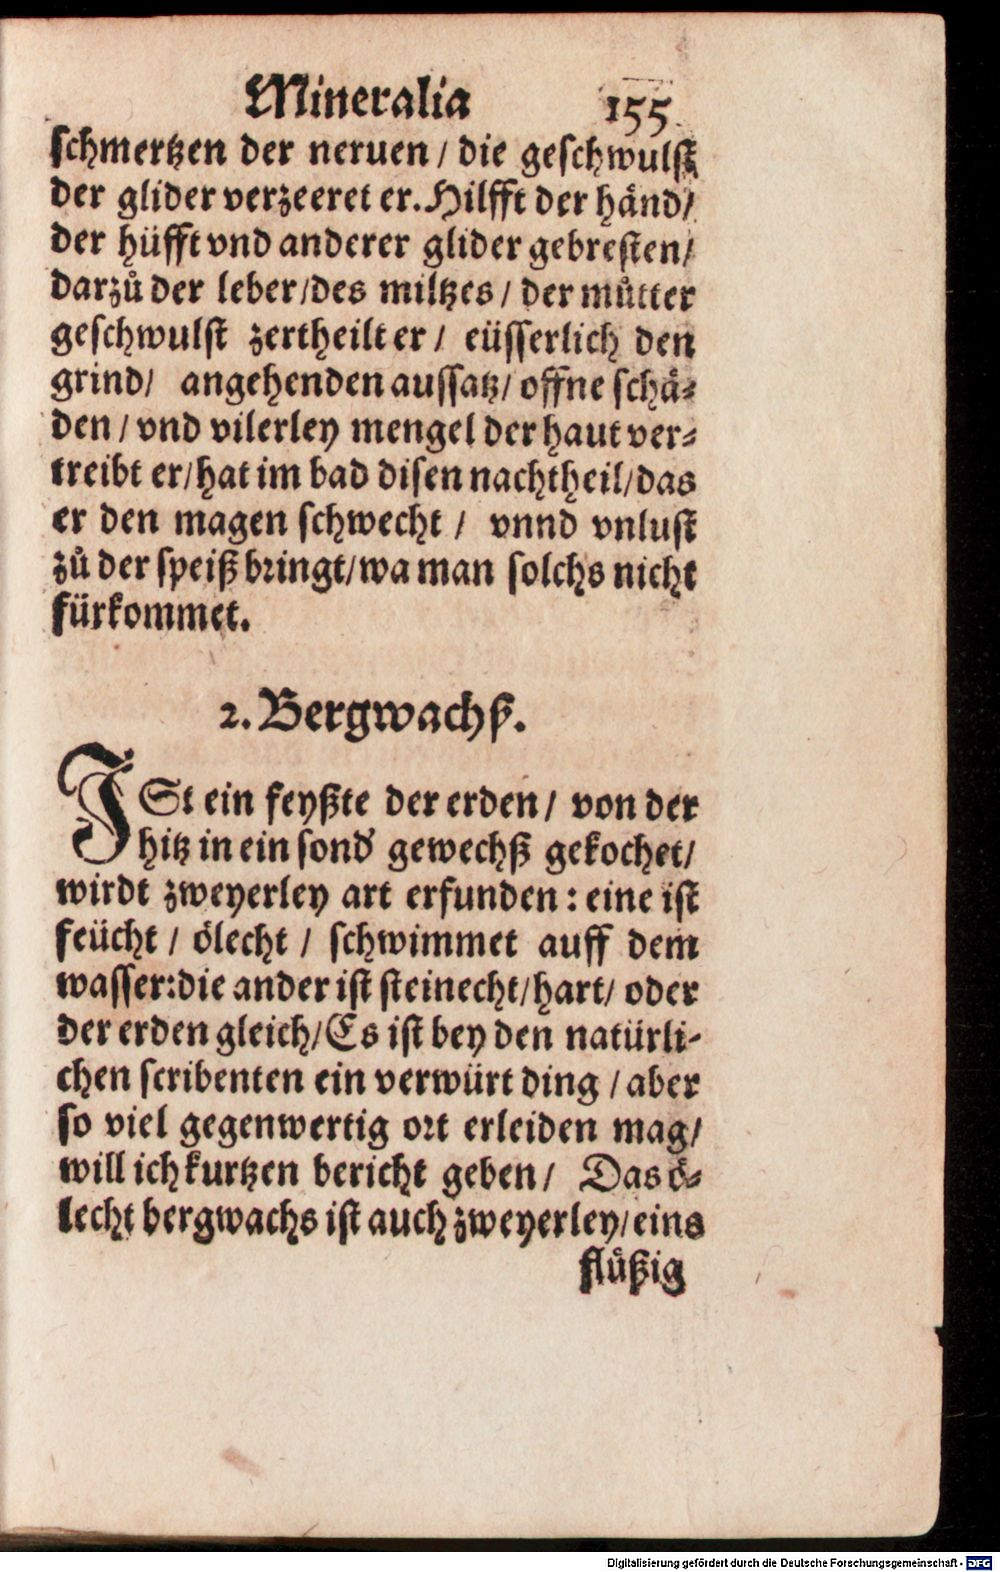 Mineralia 155
schmertzen der neruen / die geschwulst
der glider verzeeret er. Hilfft der händ/
der hüfft vnd anderer glider gebresten/
darzů der leber/des miltzes / der můtter
geschwulst zertheilt er / eüsserlich den
grind/ angehenden aussatz/ offne schä⸗
den / vnd vilerley mengel der haut ver⸗
treibt er/hat im bad disen nachtheil/das
er den magen schwecht / vnnd vnlust
zů der speiß bringt/wa man solchs nicht
fürkommet.
2. Bergwachß.
ISt ein feyßte der erden / von der
hitz in ein sond' gewechß gekochet/
wirdt zweyerley art erfunden : eine ist
feücht / ölecht / schwimmet auff dem
wasser:die ander ist steinecht/hart/ oder
der erden gleich/Es ist bey den natürli-
chen scribenten ein verwürt ding / aber
so viel gegenwertig ort erleiden mag/
will ich kurtzen bericht geben / Das ö⸗
lecht bergwachs ist auch zweyerley/eins
flüßig
Digitalisierung gefördert durch die Deutsche Forschungsgemeinschaft - DFG